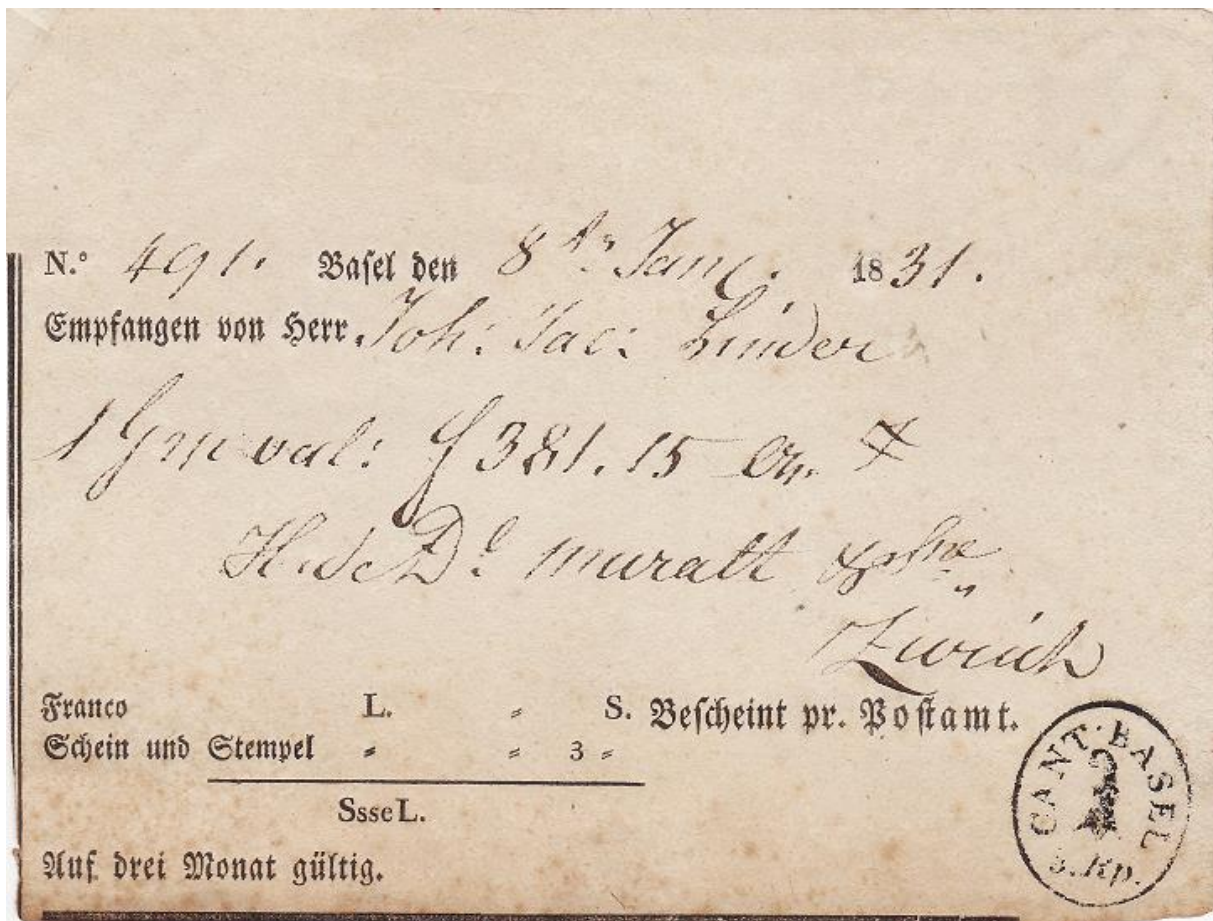 N.° 491. Basel den 8 Janr. 1831.
Empfangen von Herr Joh: Jac: Linder
1 val: f 381.15
Muralt
Zurich
Franco L. " S. Bescheint pr. Postamt.
Schein und Stempel " " 3 "
Ssse L.
Auf drei Monat gültig.
CANT. BASEL
5. Rp.